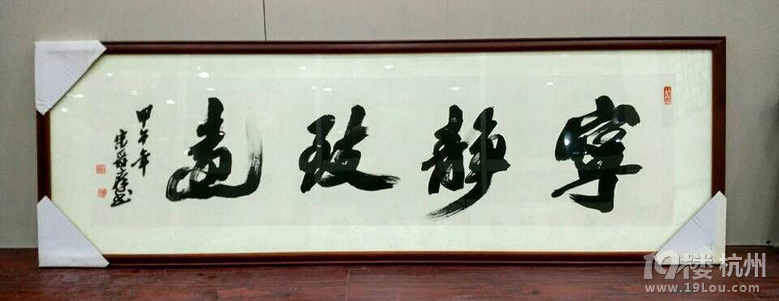 寧靜致遠
甲午年
19楼 杭州
www.19Lou.com